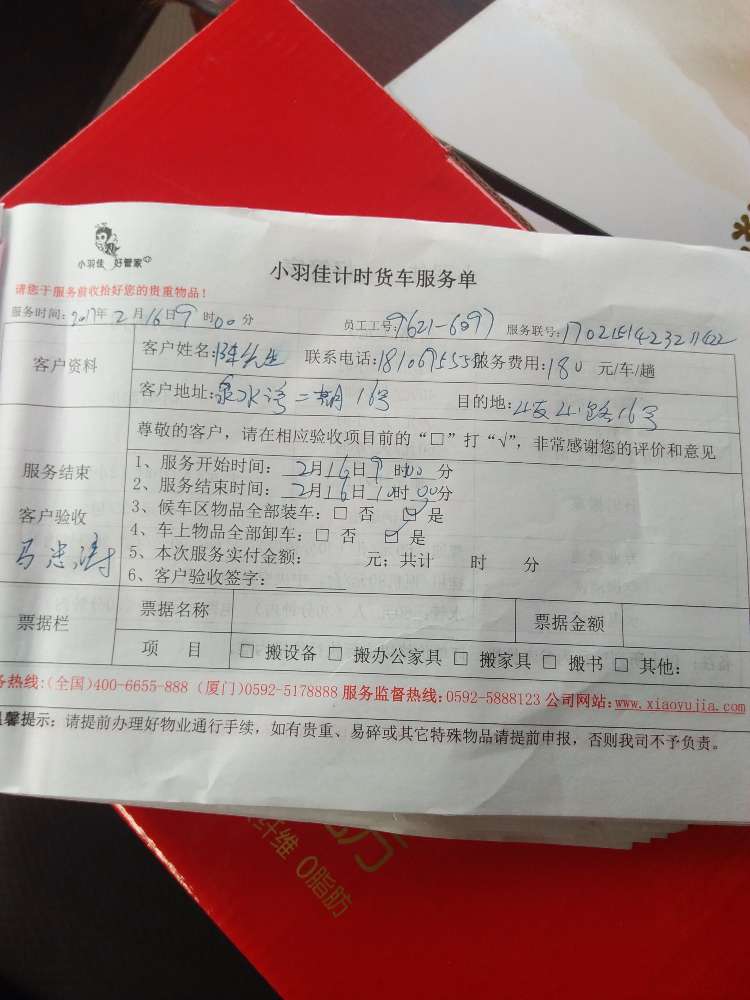 小羽佳 好管家
小羽佳计时货车服务单
请您于服务前收拾好您的贵重物品！
服务时间：2017年2月16日9时00分 员工工号：9621-6097 服务联号：
客户资料
客户姓名：陈先生 联系电话： 服务费用：180 元/车/趟
客户地址：泉水湾二期16号 目的地：
尊敬的客户，请在相应验收项目前的“□”打“√”，非常感谢您的评价和意见
服务结束
客户验收
1、服务开始时间：2月16日9时00分
2、服务结束时间：2月16日10时00分
3、候车区物品全部装车：□ 否 ☑ 是
4、车上物品全部卸车：□ 否 ☑ 是
5、本次服务实付金额： 元；共计 时 分
6、客户验收签字：
票据栏
票据名称 票据金额
项 目 □ 搬设备 □ 搬办公家具 □ 搬家具 □ 搬书 □ 其他：
务热线：(全国)400-6655-888 (厦门)0592-5178888 服务监督热线：0592-5888123 公司网站：www.xiaoyujia.com
温馨提示：请提前办理好物业通行手续，如有贵重、易碎或其它特殊物品请提前申报，否则我司不予负责。
纤维 0脂肪